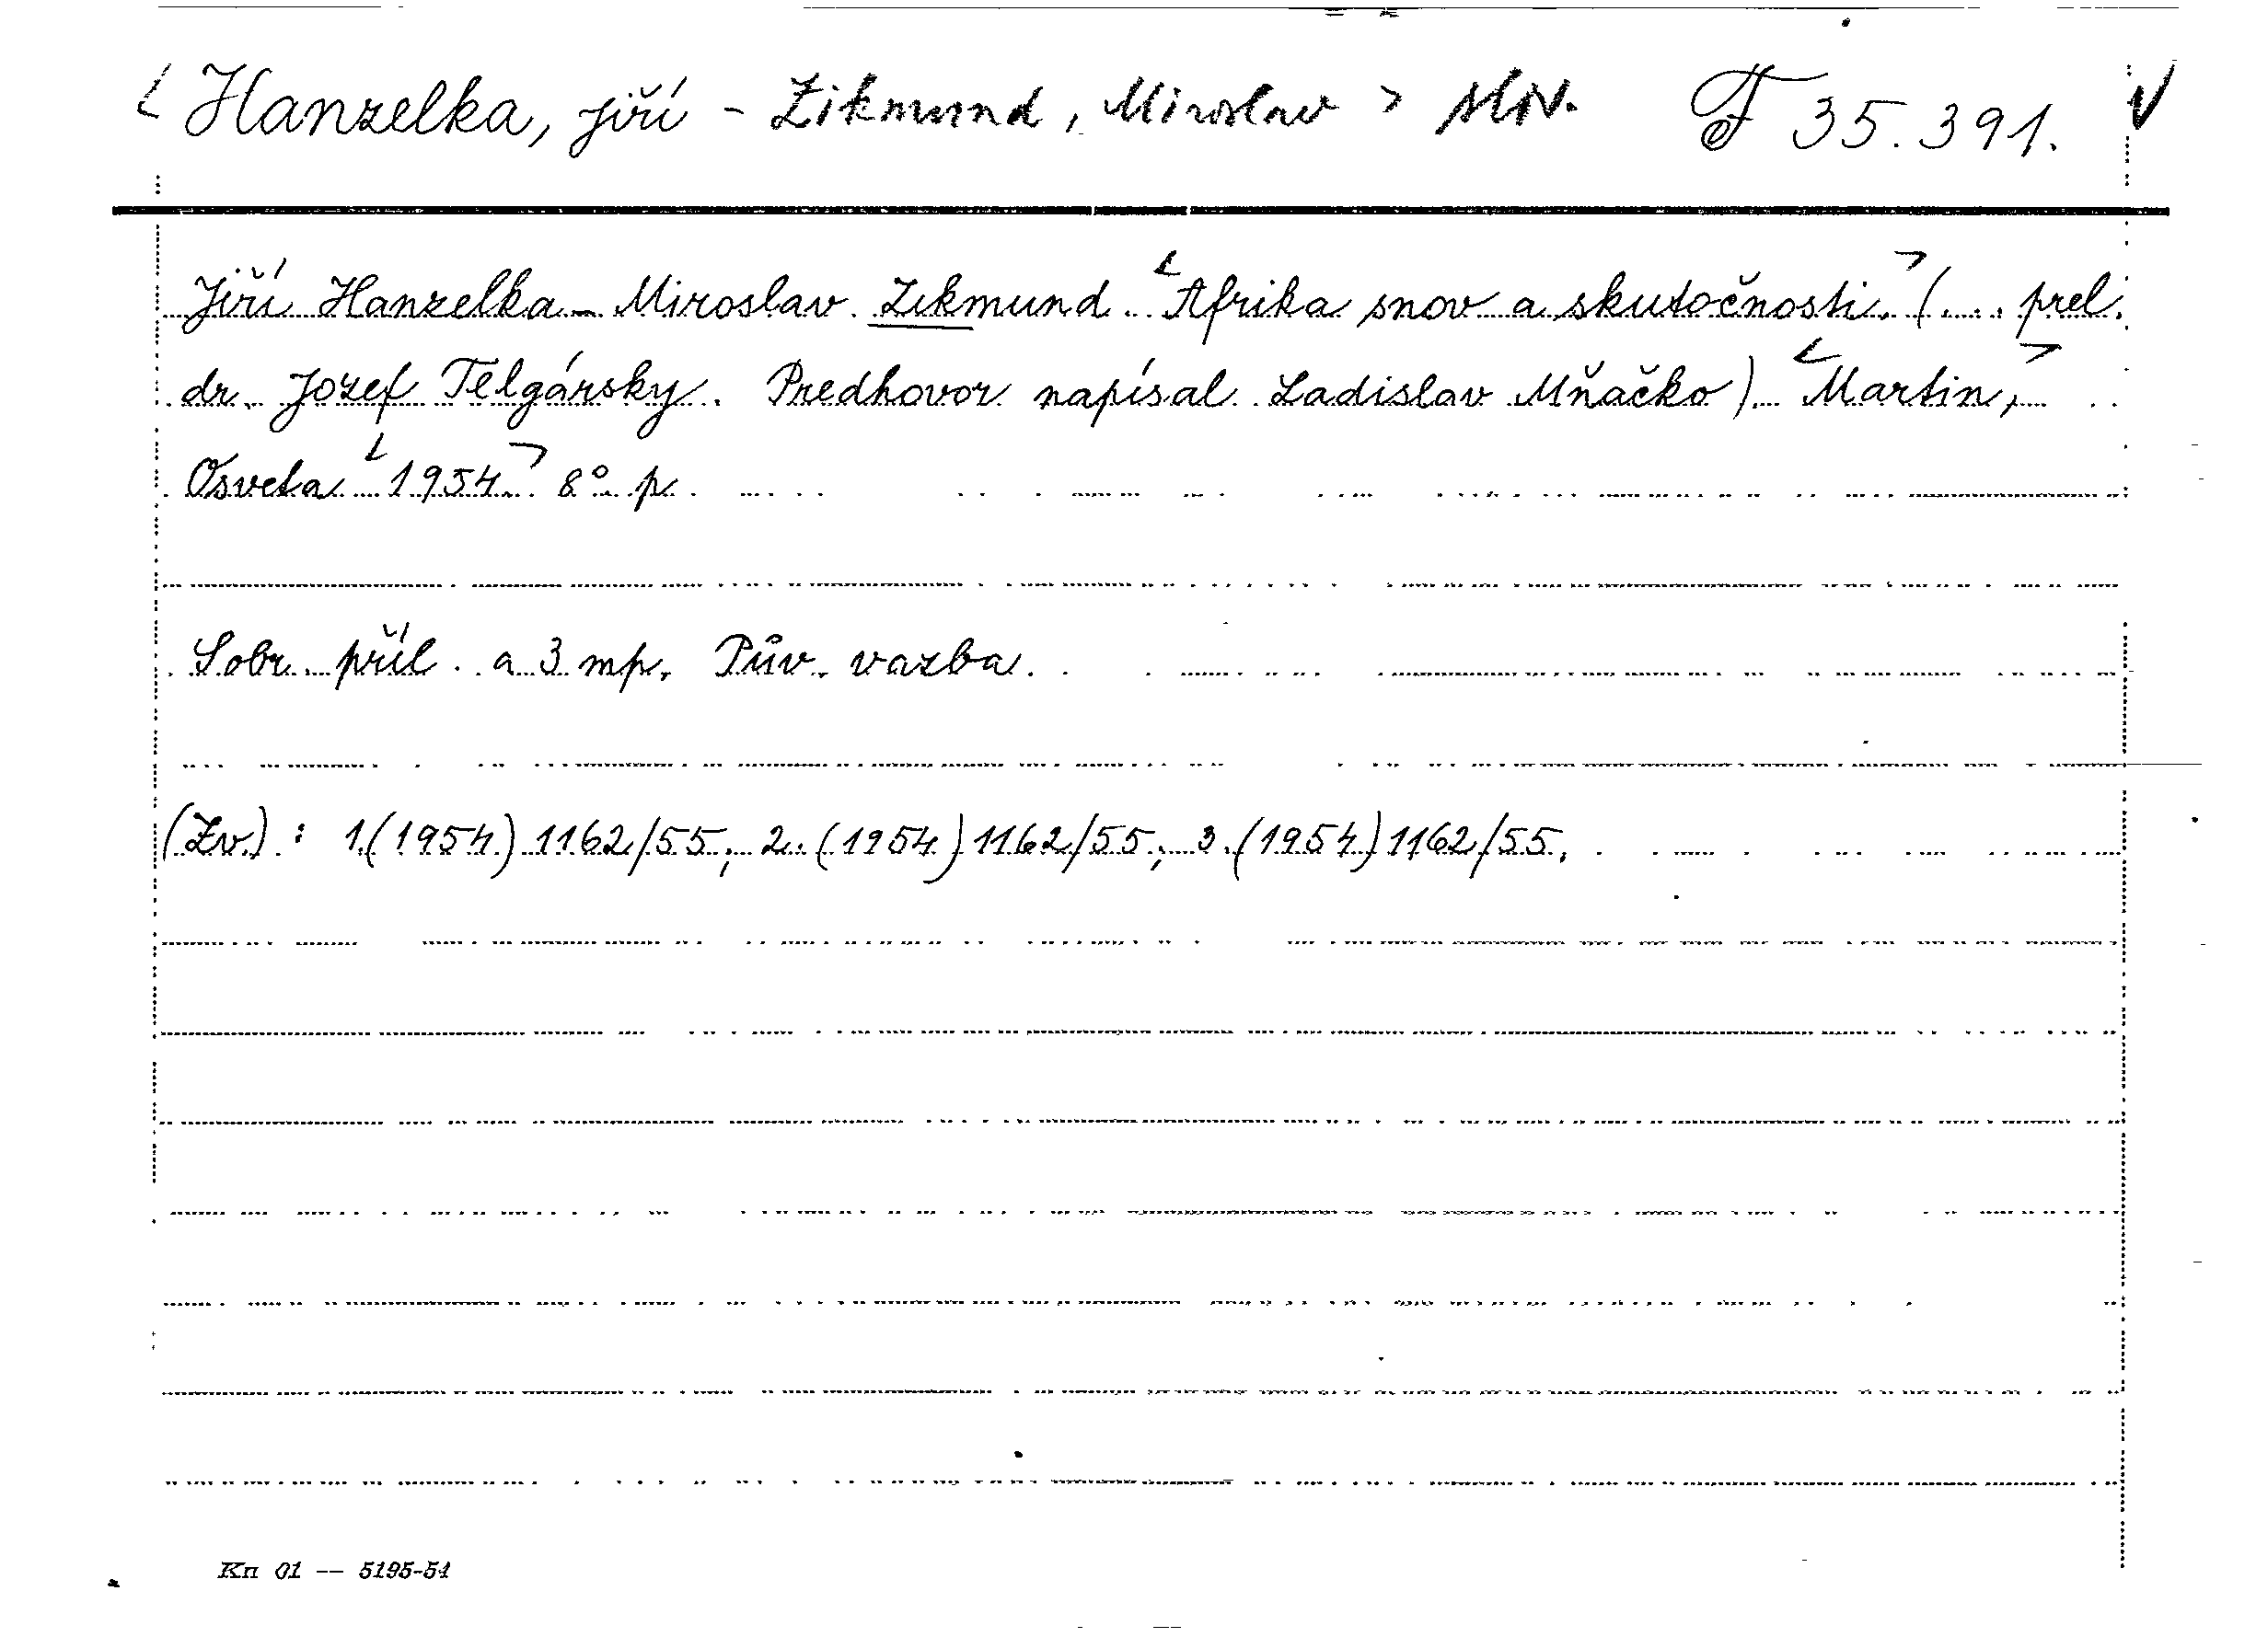 < Hanzelka, Jiří - Zikmund, Miroslav > slov. F 35.391. V
Jiří Hanzelka - Miroslav Zikmund. <Afrika snov a skutočnosti.> (... prel.
dr. Jozef Telgársky. Predhovor napísal Ladislav Mňačko). <Martin,>
Osveta <1954.> 8° p.
S obr. příl. a 3 mp. Pův. vazba.
(Zv.): 1.(1954) 1162/55; 2. (1954) 1162/55; 3.(1954) 1162/55.
Kn 01 — 5195-54